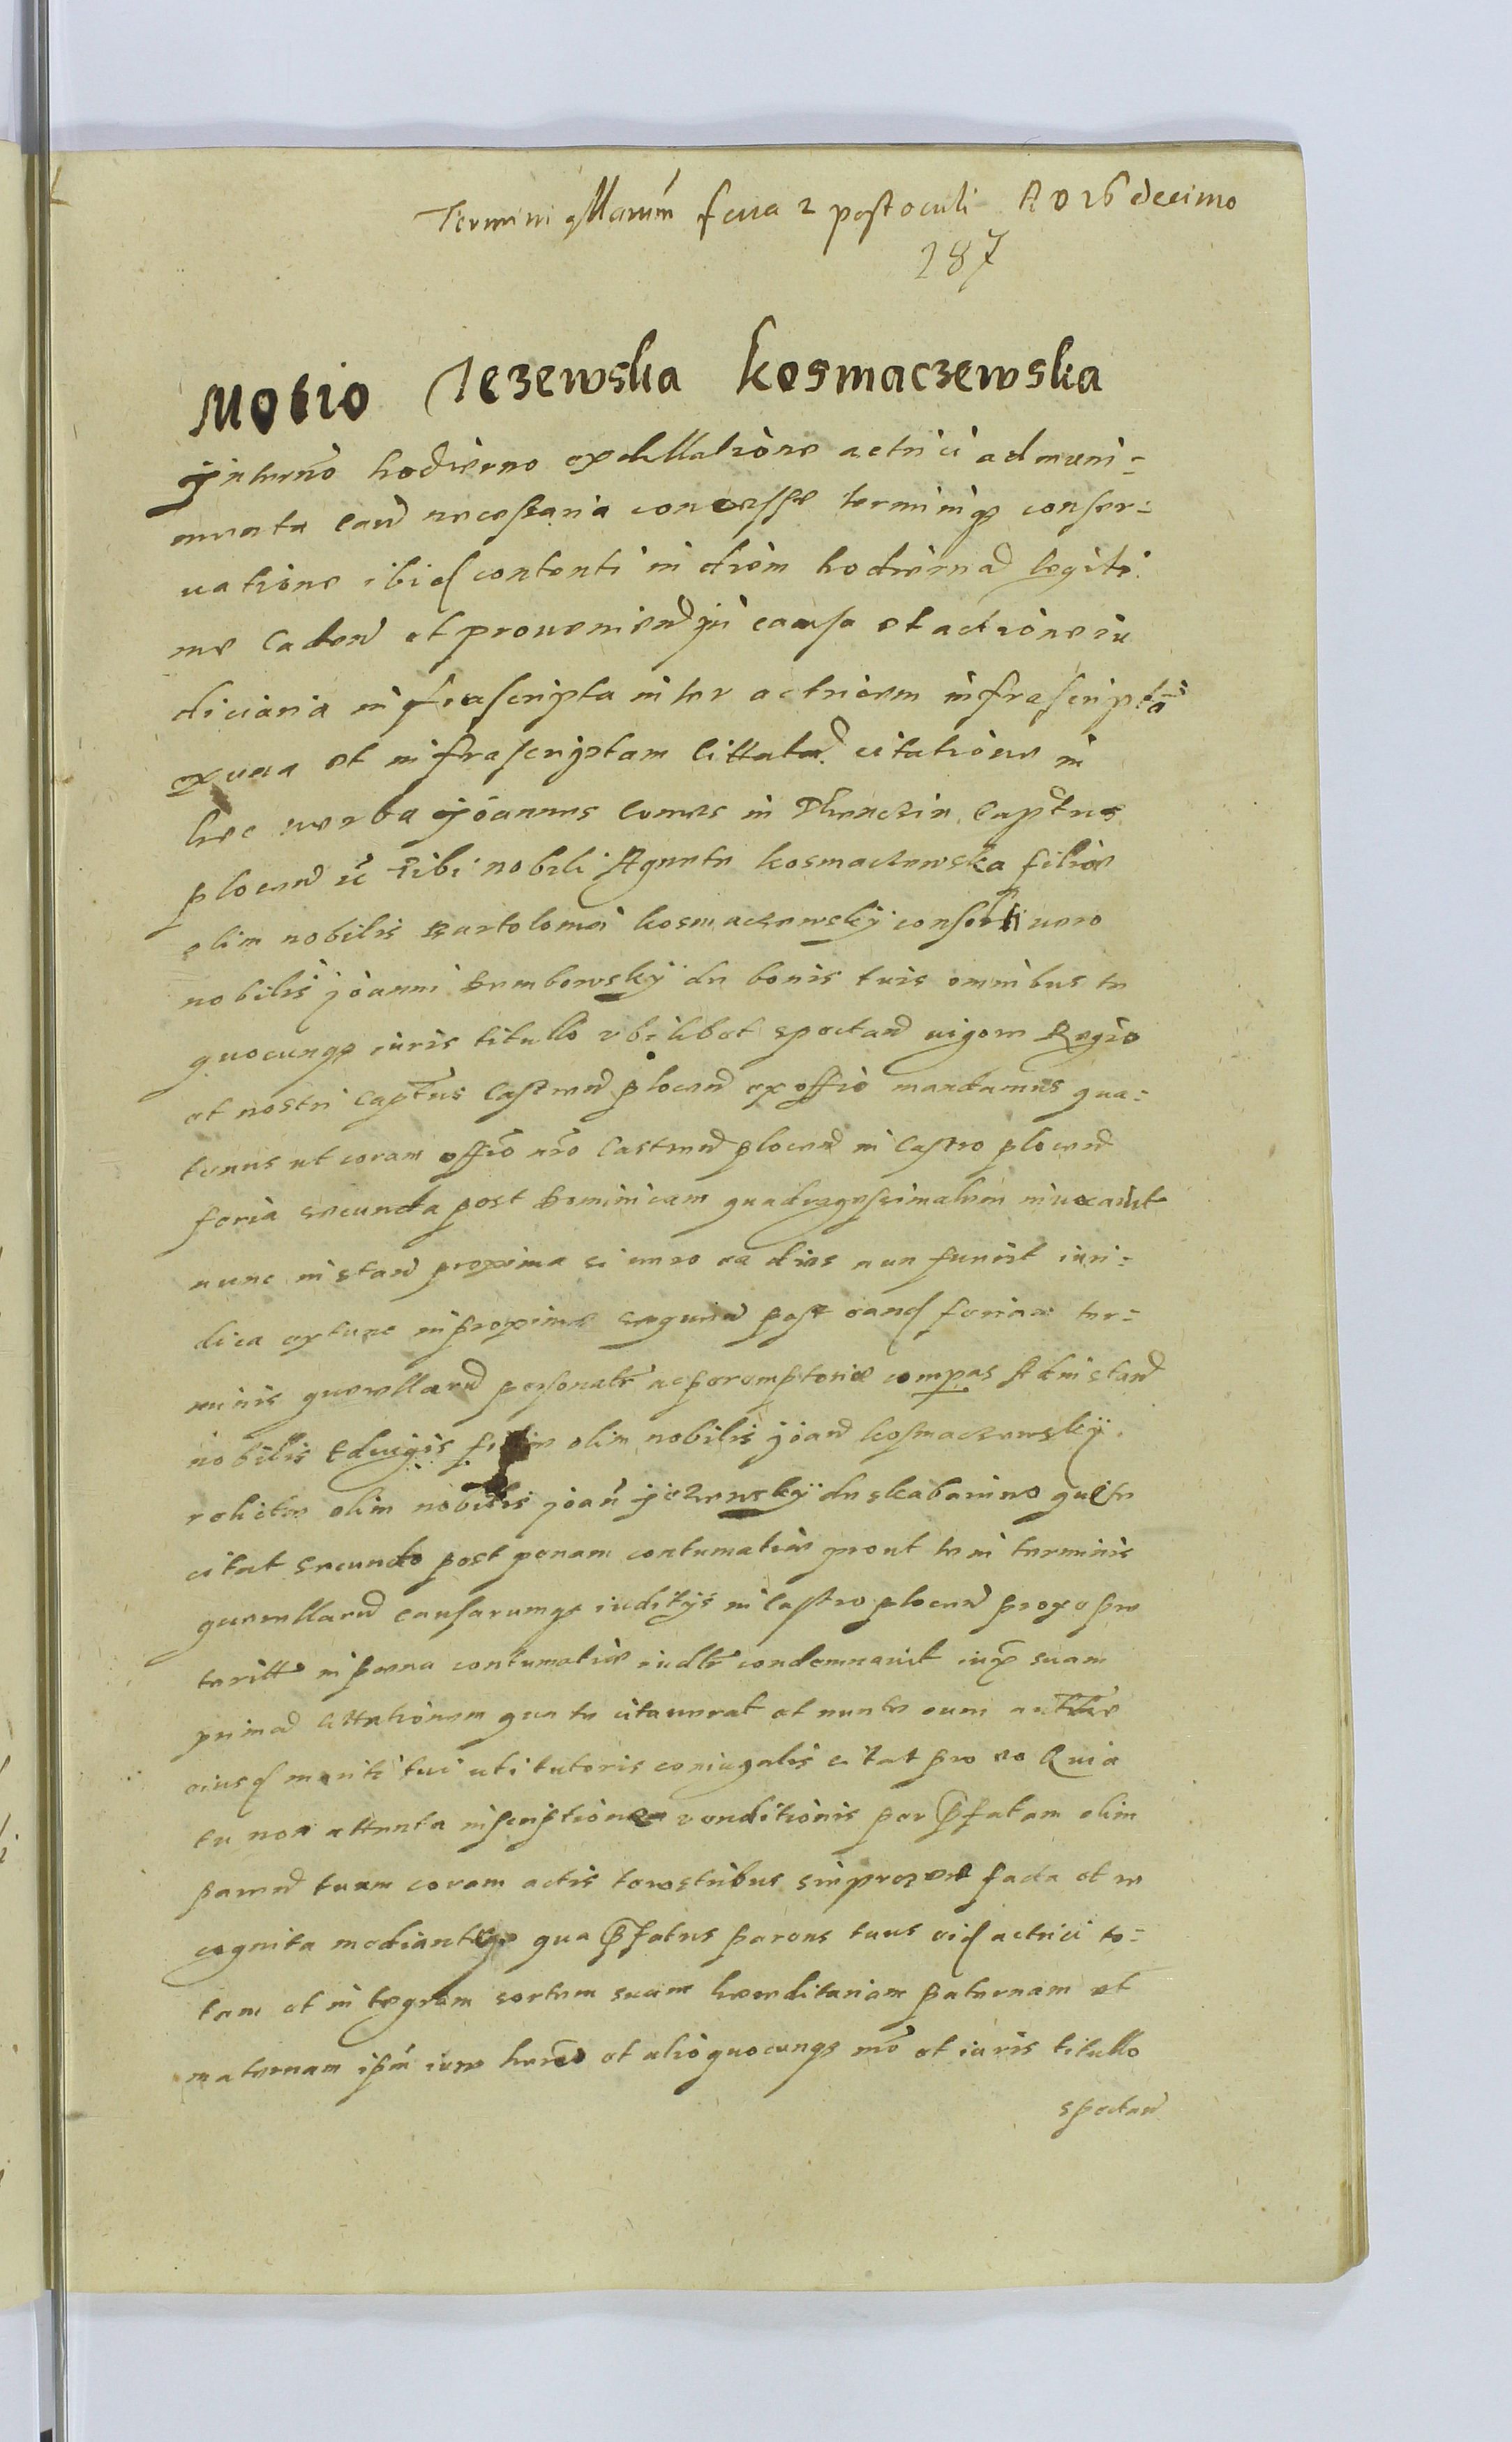 Termini qllarum feria 2 post oculi A D 16 decimo
287
Motio Jezewska kosmaczewska
In termino hodierno ex dillatione actrici ad muni=
menta eand necessaria concesse terminiq conser=
uatione ibid contenti in diem hodiernad legiti
me caden et prouenien in causa et actione iu
diciaria infrascripta inter actricem infrascripta
ex una et infrascriptam cittatad citatione in
hec uerba Joannes comes in Thenczin Captus
plocen tibi nobili Agnete kosmaczewska filie
olim nobilis Bartolomei kosmaczewsky consorti uero
nobilis Joanni Bembowsky de bonis tuis omnibus te
quocunqe iuris titullo ubilibet spectan uigore Regio
et nostri captus Castren plocen ex offio mandamus qua=
tenus ut coram offio nro Castren plocen in Castro plocen
feria secunda post Dominicam quadragesimalem inuocauit
nunc instan proxima si uero ea dies non fuerit iuri=
dica extunc in proxime sequen post eand feriam ter=
minis querellarud personalr ac peremptorie compas Ad instan
nobilis Eduigis filie olim nobilis joan kosmaczewsky
relicte olim nobilis joan jezewsky de skabaiewo que te
citat secundo post penam contumatie prout te in terminis
querellarud causarumqe iuditys in Castro plocen proxo pre
teritt in pena contumatie iudlr condemnauit iux suam
primad cittationem qua te citauerat et nunc te cum
eiusd mariti tui uti tutoris coniugalis citat pro eo Quia
tu non attenta inscriptione uenditionis per pfatam olim
paren tuam coram actis terrestribus facta et re
cognita mediante qua pfatus parens tuus eid actrici to=
tam et integram sortem suam hereditariam paternam et
maternam ipsi iure hered et alio quocunqe mo et iuris titullo
spectan